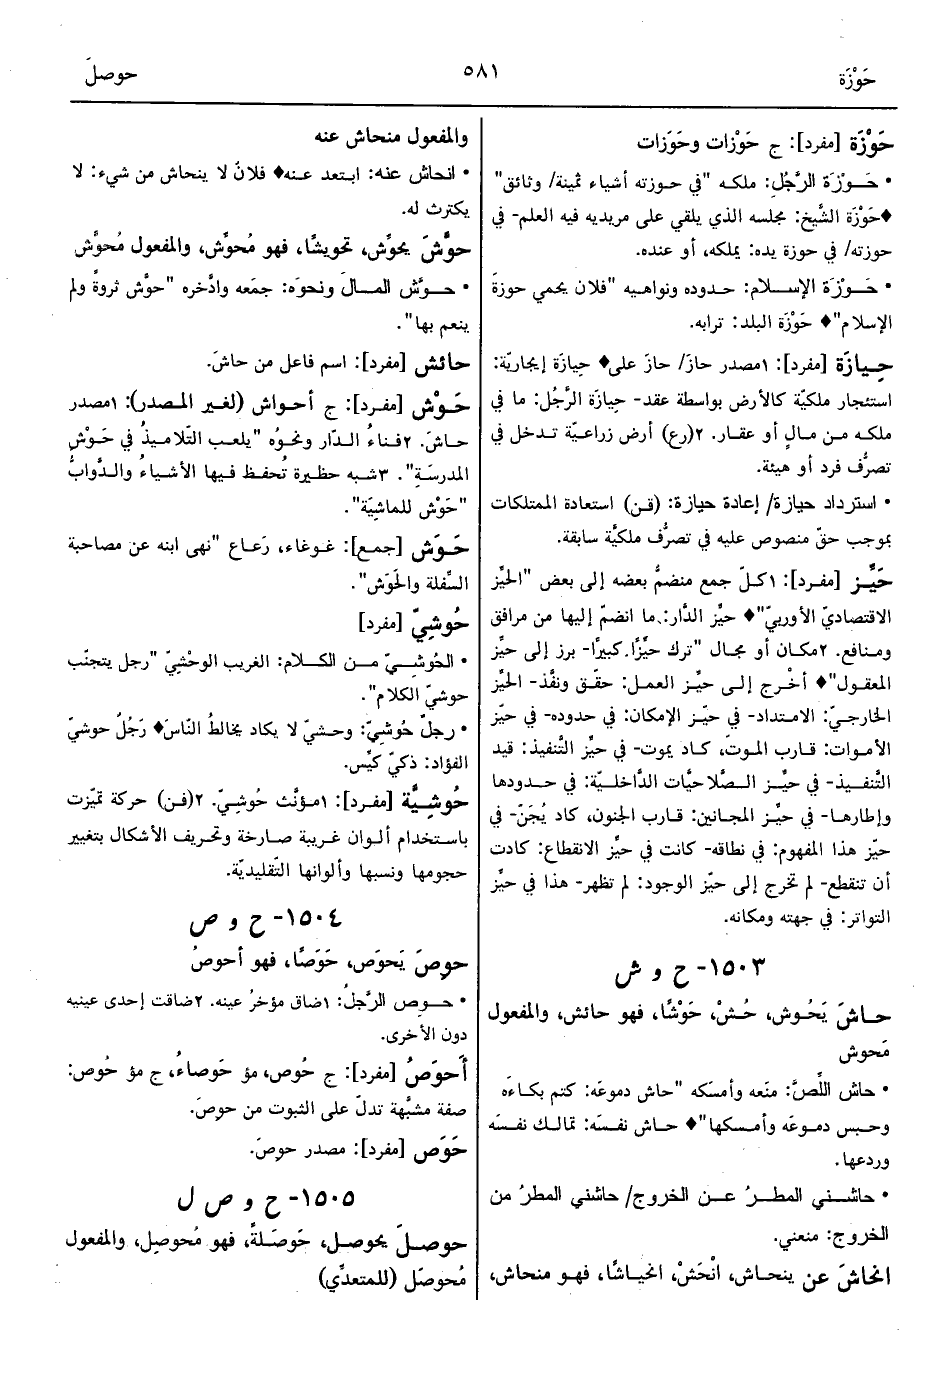 حَوْزَة
٥٨١
حوصلَ
حَوْزَة [مفرد]: ج حَوْزات وحَوَزات
• حَوْزَة الرَّجُلِ: ملكه "في حوزته أشياء ثمينة/ وثائق"
♦حَوْزَة الشَّيخ: مجلسه الذي يلقي على مريديه فيه العلم- في
حوزته/ في حوزة يده: يملكه، أو عنده.
• حَوْزَة الإسلام: حدوده ونواهيه "فلان يحمي حوزة
الإسلام"♦ حَوْزَة البلد: ترابه.
حِيازَة [مفرد]: ١مصدر حازَ/ حازَ على♦ حِيازَة إيجاريّة:
استئجار ملكيّة كالأرض بواسطة عقد- حِيازَة الرَّجُل: ما في
ملكه من مالٍ أو عقار. ٢(رع) أرض زراعيّة تدخل في
تصرُّف فرد أو هيئة.
• استرداد حيازة/ إعادة حيازة: (قن) استعادة الممتلكات
بموجب حقّ منصوص عليه في تصرُّف ملكيَّة سابقة.
حَيِّز [مفرد]: ١كلّ جمع منضمٌّ بعضه إلى بعض "الحَيِّز
الاقتصاديّ الأوربيّ"♦ حيِّز الدَّار: ما انضمّ إليها من مرافق
ومنافع. ٢مكان أو مجال "ترك حيِّزًا كبيرًا- برز إلى حيِّز
المعقول"♦ أخْرج إلى حيِّز العمل: حقّق ونفَّذ- الحَيِّز
الخارجيّ: الامتداد- في حيِّز الإمكان: في حدوده- في حيِّز
الأموات: قارب الموتَ، كاد يموت- في حيِّز التَّنفيذ: قيد
التَّنفيذ- في حيِّز الصَّلاحيَّات الدَّاخليَّة: في حدودها
وإطارها- في حيِّز المجانين: قارب الجنون، كاد يُجَنّ- في
حيِّز هذا المفهوم: في نطاقه- كانت في حيِّز الانقطاع: كادت
أن تنقطع- لم تخرج إلى حيّز الوجود: لم تظهر- هذا في حيِّز
التواتر: في جهته ومكانه.
١٥٠٣- ح و ش
حاشَ يَحُوش، حُشْ، حَوْشًا، فهو حائش، والمفعول
مَحوش
• حاش اللِّصَّ: منَعه وأمسَكه "حاش دموعَه: كتم بكاءَه
وحبس دموعَه وأمسكها"♦ حاش نفسَه: تمالك نفسَه
وردعها.
• حاشني المطرُ عن الخروج/ حاشني المطرُ من
الخروج: منعني.
انحاشَ عن ينحاش، انْحَشْ، انحياشًا، فهو منحاش،
والمفعول منحاش عنه
• انحاش عنه: ابتعد عنه♦ فلانٌ لا ينحاش من شيء: لا
يكترث له.
حوَّشَ يحوِّش، تحويشًا، فهو مُحوِّش، والمفعول مُحوَّش
• حوَّش المالَ ونحوَه: جمَعه وادَّخره "حوَّش ثروةً ولم
ينعم بها".
حائش [مفرد]: اسم فاعل من حاشَ.
حَوْش [مفرد]: ج أحواش (لغير المصدر): ١مصدر
حاشَ. ٢فناءُ الدَّار ونحوُه "يلعب التّلاميذُ في حَوْشِ
المدرسَةِ". ٣شبه حظيرة تُحفظ فيها الأشياءُ والدَّوابُّ
"حَوْش للماشيَة".
حَوَش [جمع]: غوغاء، رَعاع "نهى ابنه عن مصاحبة
السِّفلة والحَوَش".
حُوشِيّ [مفرد]
• الحُوشيّ من الكلام: الغريب الوحْشِيّ "رجل يتجنّب
حوشيّ الكلام".
• رجلٌ حُوشيّ: وحشيّ لا يكاد يخالطُ النّاسَ♦ رَجُلٌ حوشيّ
الفؤاد: ذكيّ كيِّس.
حُوشيَّة [مفرد]: ١مؤنَّث حُوشيّ. ٢(فن) حركة تميّزت
باستخدام ألوان غريبة صارخة وتحريف الأشكال بتغيير
حجومها ونسبها وألوانها التَّقليديّة.
١٥٠٤- ح و ص
حوِصَ يَحوَص، حَوَصًا، فهو أحوصُ
• حوِص الرَّجلُ: ١ضاق مؤخرُ عينه. ٢ضاقت إحدى عينيه
دون الأخرى.
أَحوَصُ [مفرد]: ج حُوص، مؤ حَوصاءُ، ج مؤ حُوص:
صفة مشبَّهة تدلّ على الثبوت من حوِصَ.
حَوَص [مفرد]: مصدر حوِصَ.
١٥٠٥- ح و ص ل
حوصلَ يحوصل، حَوصَلةً، فهو مُحوصِل، والمفعول
مُحوصَل (للمتعدِّي)